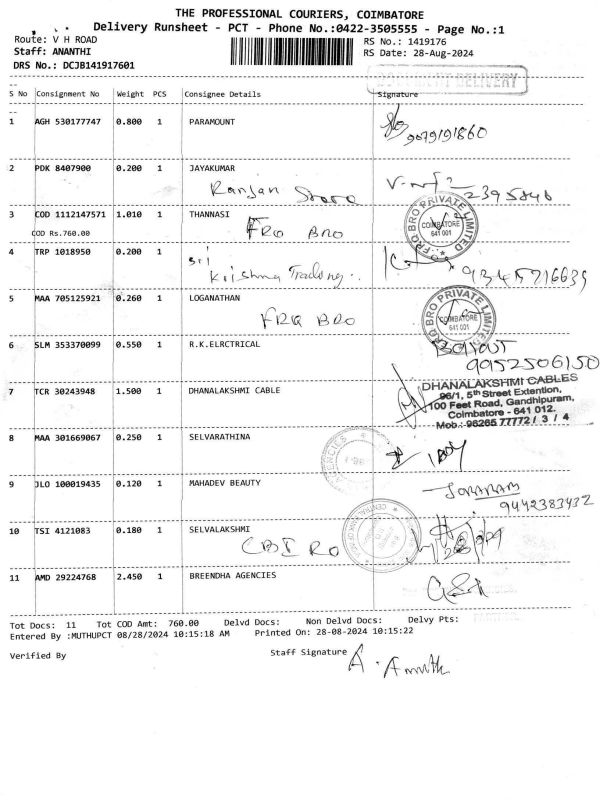 THE PROFESSIONAL COURIERS, COIMBATORE
Delivery Runsheet - PCT - Phone No.:0422-3505555 - Page No.:1
Route: V H ROAD
RS No.: 1419176
Staff: ANANTHI
RS Date: 28-Aug-2024
DRS No.: DCJB141917601
DOCUMENT DELIVERY
S No Consignment No Weight PCS Consignee Details Signature
1 AGH 530177747 0.800 1 PARAMOUNT
9079191860
2 PDK 8407900 0.200 1 JAYAKUMAR
Ranjan Store 2395848
3 COD 1112147571 1.010 1 THANNASI
COD Rs.760.00 FRQ BRO
FRQ BRO PRIVATE LIMITED
COIMBATORE
641 001
4 TRP 1018950 0.200 1
Sri
Krishna Trading
5 MAA 705125921 0.260 1 LOGANATHAN
FRQ BRO
FRQ BRO PRIVATE LIMITED
COIMBATORE
641 001
6 SLM 353370099 0.550 1 R.K.ELRCTRICAL
9952506150
7 TCR 30243948 1.500 1 DHANALAKSHMI CABLE
DHANALAKSHMI CABLES
96/1, 5th Street Extention,
100 Feet Road, Gandhipuram,
Coimbatore - 641 012.
Mob.: 96265 77772 / 3 / 4
8 MAA 301669067 0.250 1 SELVARATHINA
AGENCIES
9 JLO 100019435 0.120 1 MAHADEV BEAUTY
9442383432
10 TSI 4121083 0.180 1 SELVALAKSHMI
CBI RO
11 AMD 29224768 2.450 1 BREENDHA AGENCIES
Tot Docs: 11 Tot COD Amt: 760.00 Delvd Docs: Non Delvd Docs: Delvy Pts:
Entered By :MUTHUPCT 08/28/2024 10:15:18 AM Printed On: 28-08-2024 10:15:22
Verified By Staff Signature